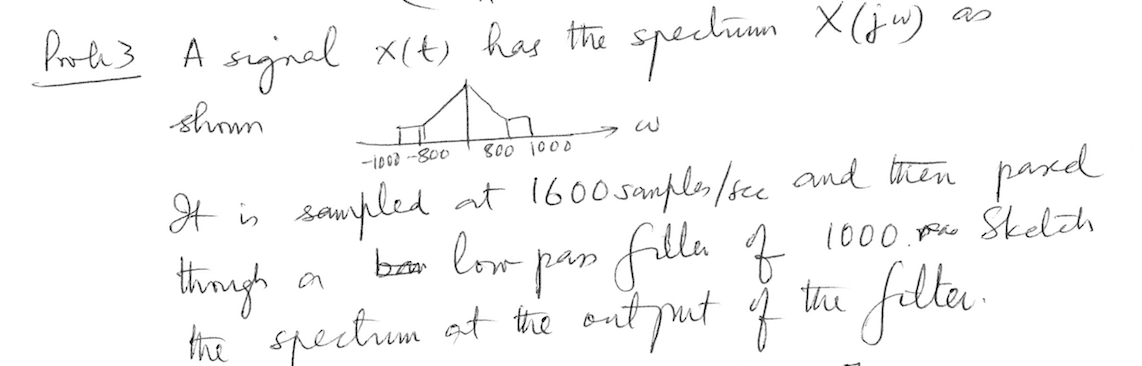 Prob 3 A signal x(t) has the spectrum X(jω) as
shown
ω
-1000 -800 800 1000
It is sampled at 1600 samples/sec and then passed
through a low pass filter of 1000. Sketch
the spectrum at the output of the filter.